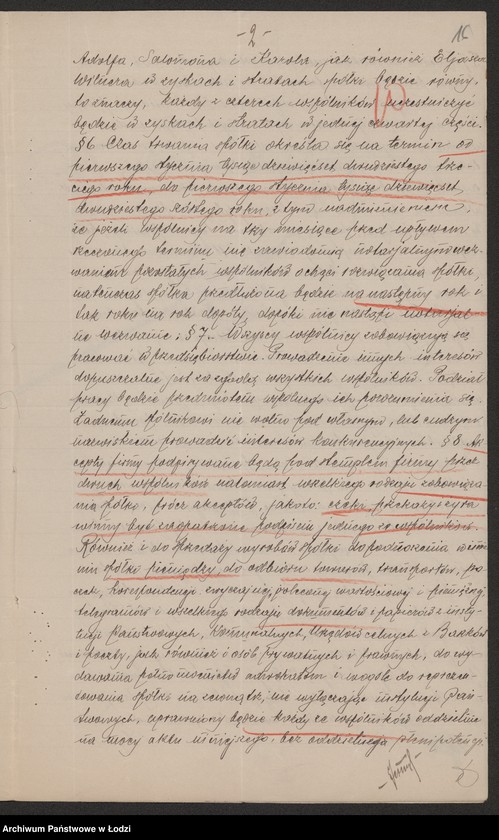 -2-
16
Adolfa, Salomona i Karola, jak również Eljasza
w zyskach i stratach spółki będzie równy,
to znaczy, każdy z czterech wspólników uczestniczyć
będzie w zyskach i stratach w jednej czwartej części.
§6. Czas trwania spółki określa się na termin od
pierwszego stycznia tysiąc dziewięćset dwudziestego trze-
ciego roku, do pierwszego stycznia tysiąc dziewięćset
dwudziestego szóstego roku, z tym nadmienieniem,
że jeżeli wspólnicy na trzy miesiące przed upływem
rzeczonego terminu nie zawiadomią notarjalnym wez-
waniem pozostałych wspólników o chęci rozwiązania spółki,
natenczas spółka przedłużona będzie na następny rok i
tak roku na rok dopóty, dopóki nie nastąpi notarjal-
ne wezwanie. §7. Wszyscy wspólnicy zobowiązują się
pracować w przedsiębiorstwie. Prowadzenie innych interesów
dopuszczalne jest za zgodą wszystkich wspólników. Podział
pracy będzie przedmiotem wspólnego ich porozumienia się.
Żadnemu spólnikowi nie wolno pod własnym, lub cudzym
nazwiskiem prowadzić interesów konkurencyjnych. §8. Ak-
cepty firmy podpisywane będą pod stemplem firmy przez
dwuch wspólników natomiast wszelkiego rodzaju zobowiąza-
nia spółki, prócz akceptów, jako to: czeki, przekazy, żyra
winny być zaopatrzone podpisem jednego ze wspólników.
Również i do sprzedaży wyrobów spółki do podnoszenia w imie-
niu spółki pieniędzy, do odbioru towarów, transportów, pa-
czek, korespondencji zwyczajnej, poleconej wartościowej i pieniężnej
telegramów i wszelkiego rodzaju dokumentów i papierów z insty-
tucji Państwowych, Komunalnych, Urzędów Celnych z Banków
i poczty, jak również i osób prywatnych i prawnych, do wy-
dawania pełnomocnictw adwokatom i wogóle do reprezen-
towania spółki na zewnątrz, nie wyłączając instytucji Pań-
stwowych, uprawniony będzie każdy ze wspólników oddzielnie
na mocy aktu niniejszego, bez oddzielnego plenipotencji.
Archiwum Państwowe w Łodzi